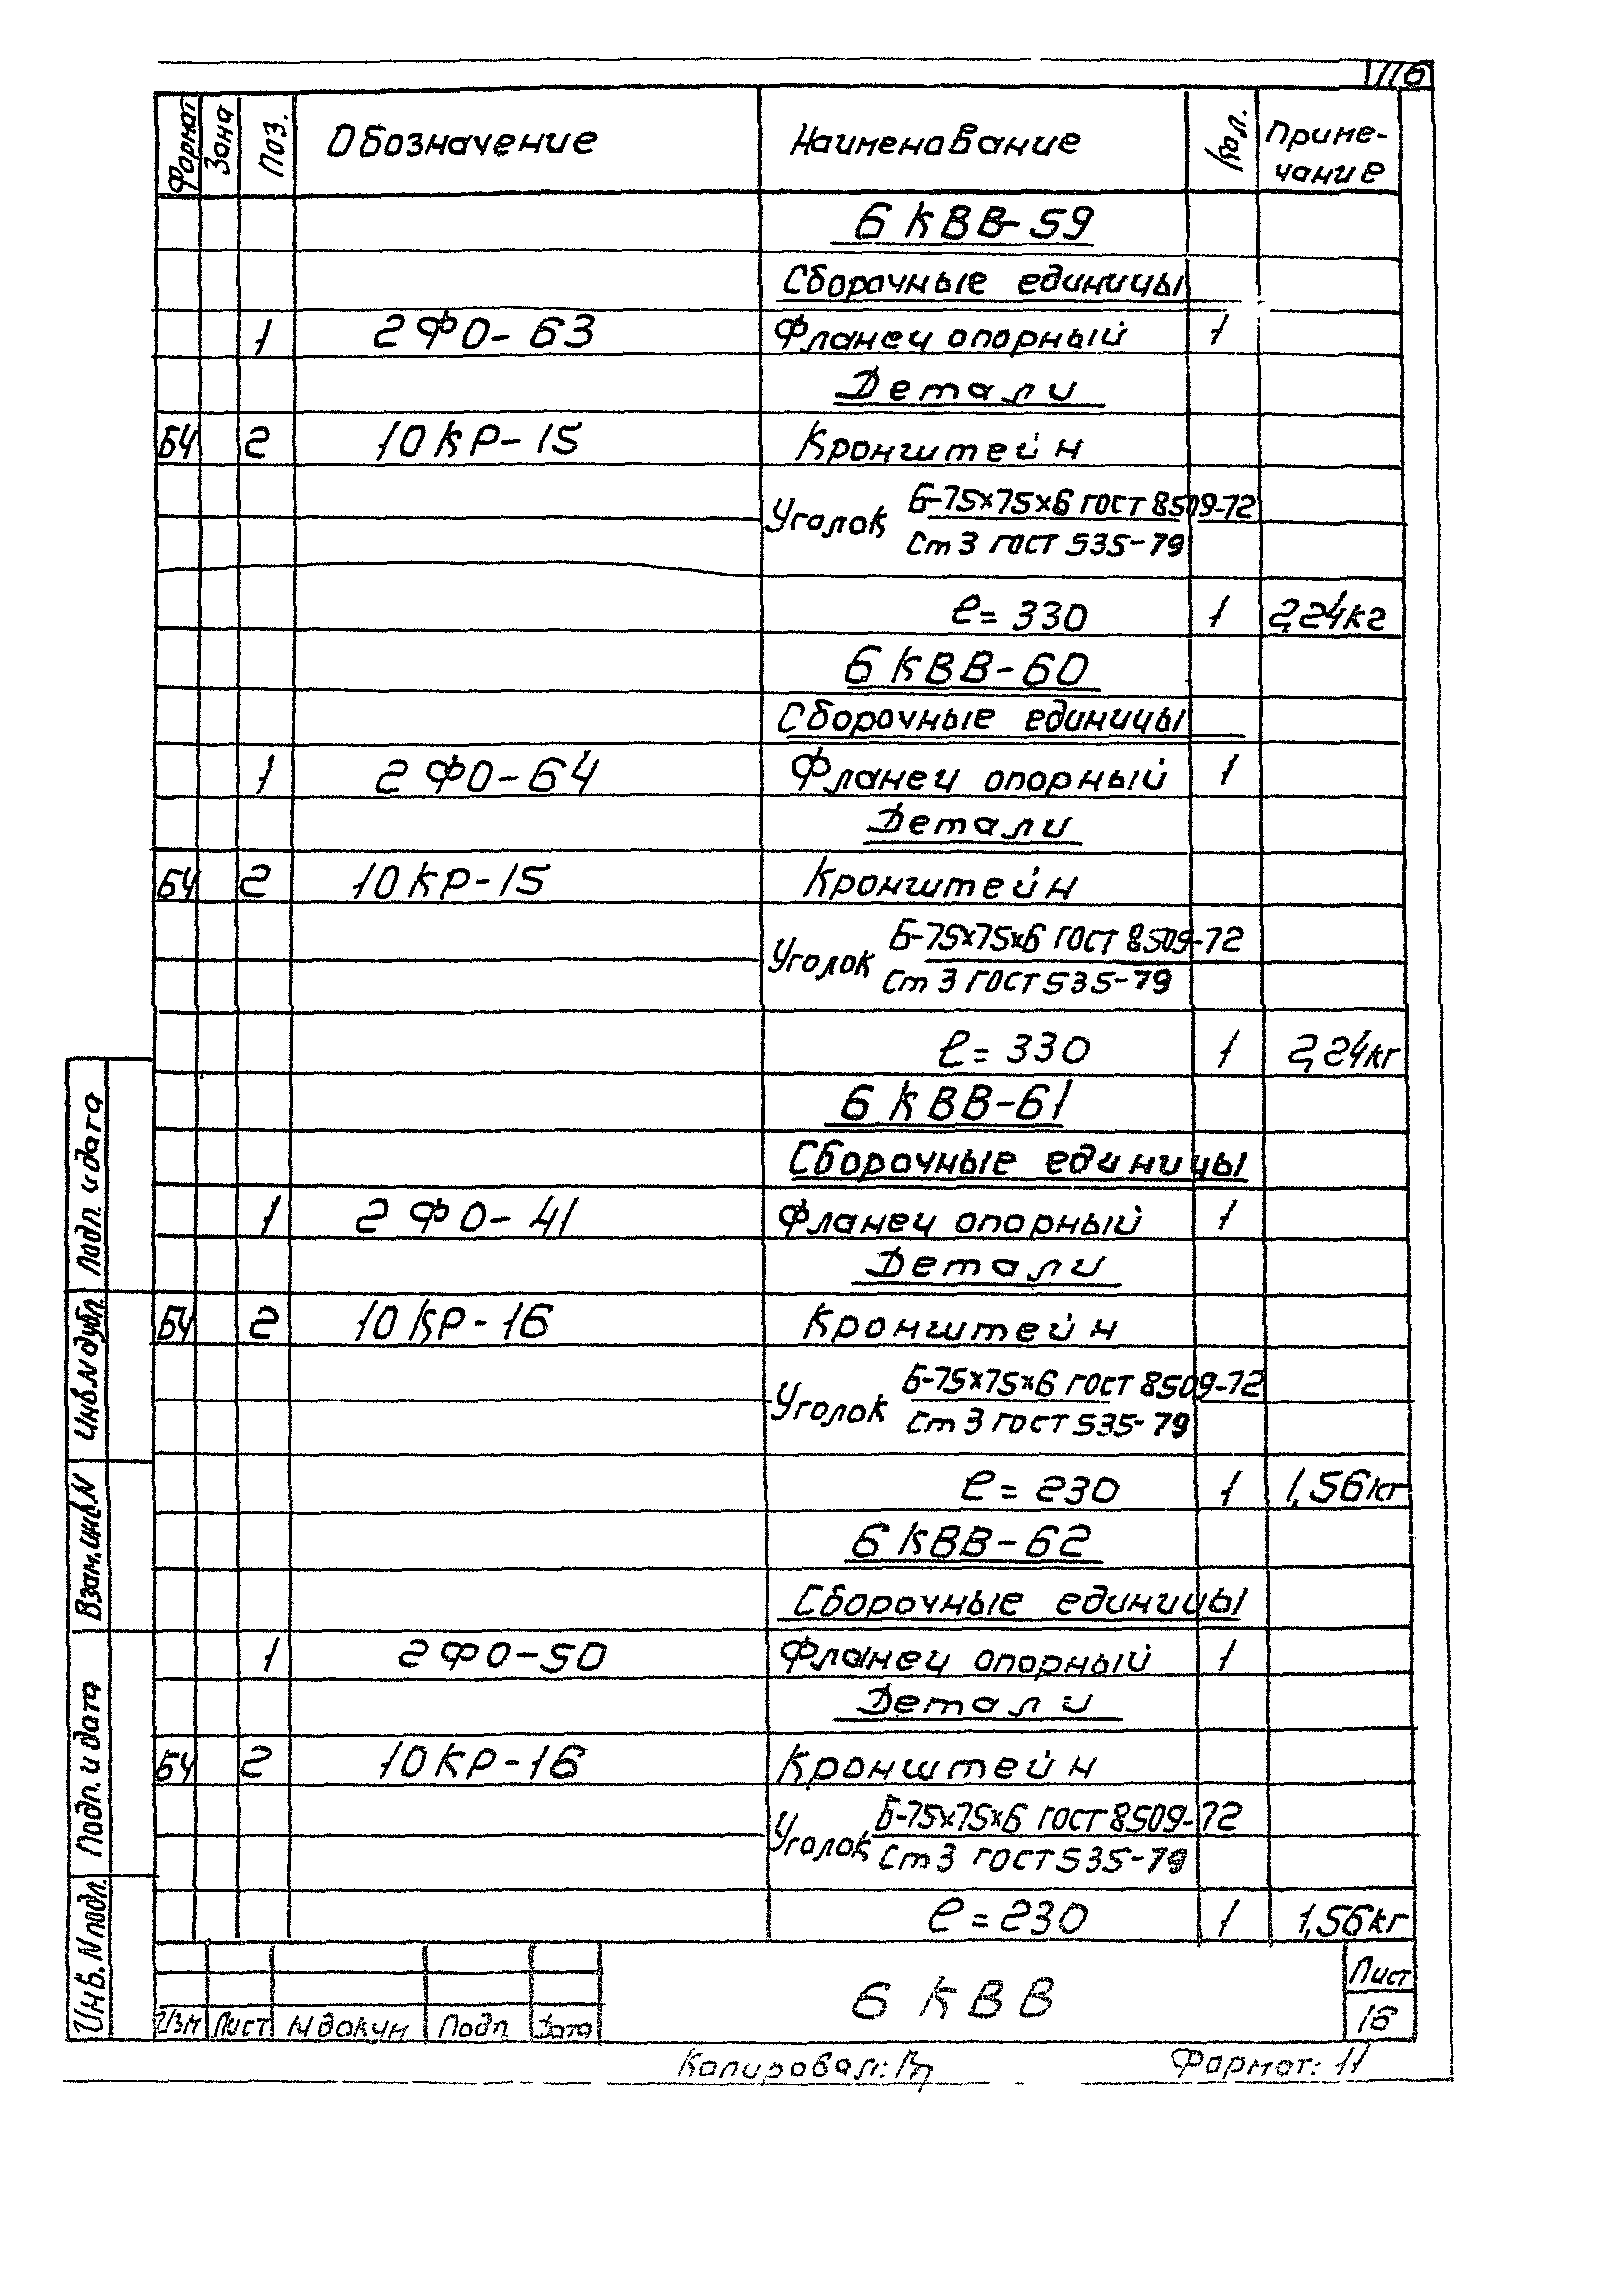 116
Формат Зона Поз. Обозначение Наименование Кол. Приме-
чание
6 КВВ-59
Сборочные единицы
1 2ФО-63 Фланец опорный 1
Детали
БЧ 2 10КР-15 Кронштейн
Уголок Б-75х75х6 ГОСТ 8509-72
Ст 3 ГОСТ 535-79
ℓ=330 1 2,24кг
6 КВВ-60
Сборочные единицы
1 2ФО-64 Фланец опорный 1
Детали
БЧ 2 10КР-15 Кронштейн
Уголок Б-75х75х6 ГОСТ 8509-72
Ст 3 ГОСТ 535-79
ℓ=330 1 2,24кг
6 КВВ-61
Сборочные единицы
1 2ФО-41 Фланец опорный 1
Детали
БЧ 2 10КР-16 Кронштейн
Уголок Б-75х75х6 ГОСТ 8509-72
Ст 3 ГОСТ 535-79
ℓ=230 1 1,56кг
6 КВВ-62
Сборочные единицы
1 2ФО-50 Фланец опорный 1
Детали
БЧ 2 10КР-16 Кронштейн
Уголок Б-75х75х6 ГОСТ 8509-72
Ст 3 ГОСТ 535-79
ℓ=230 1 1,56кг
Подп. и дата
Инв.N дубл.
Взам.инв.N
Подп. и дата
Инв. N подл.
Изм Лист N докум Подп Дата
6 КВВ
Лист
16
Копировал:
Формат: 11